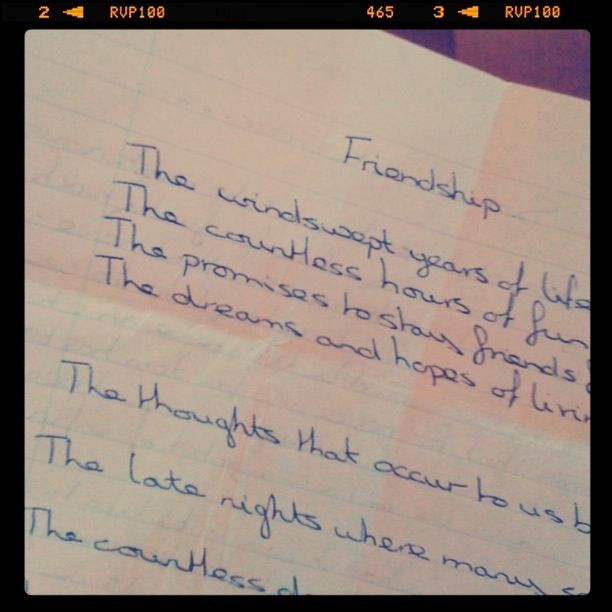 2 RVP100 465 3 RVP100
Friendship
The windswept years of life
The countless hours of fun
The promises to stay friends
The dreams and hopes of livin
The thoughts that occur to us b
The late nights where many
The countless